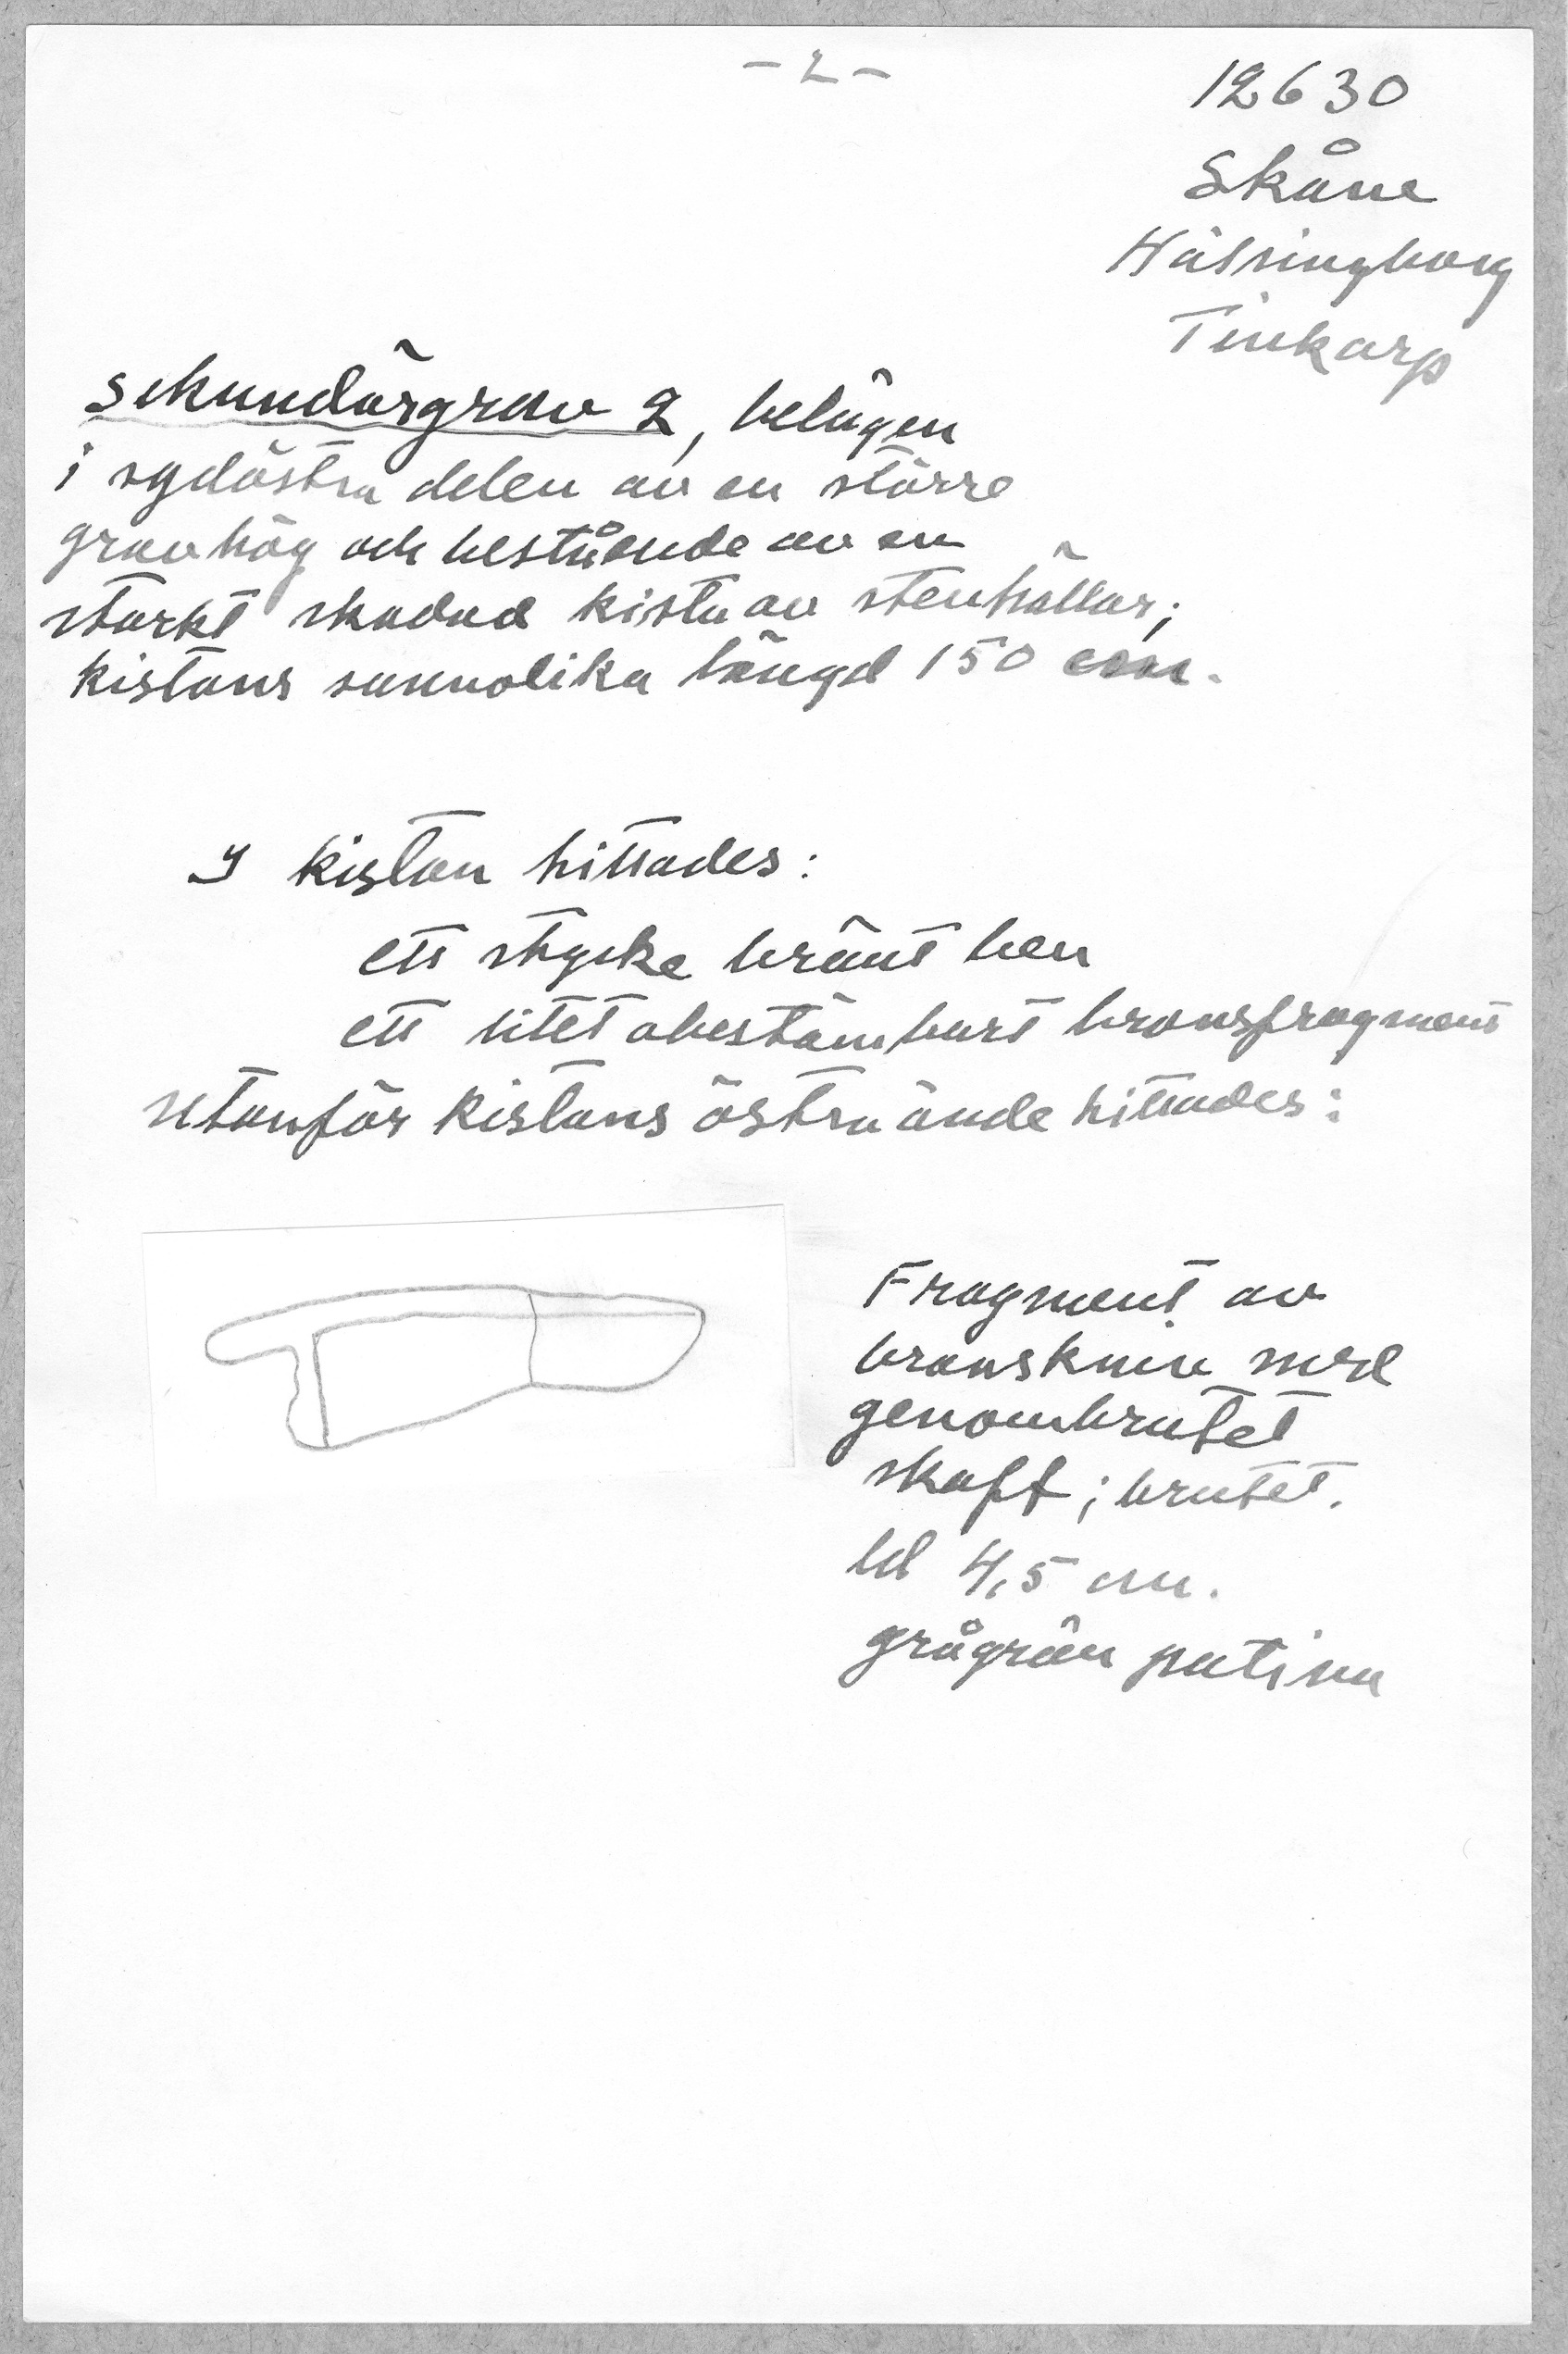 - 2 -
12630
Skåne
Hälsingborg
Tinkarp
Sekundärgrav 2, belägen
i sydöstra delen av en större
gravhög och bestående av en
starkt skadad kista av stenhällar;
kistans sannolika längd 150 cm.
I kistan hittades:
ett stycke bränt ben
ett litet obestämbart bronsfragment
utanför kistans östra ände hittades:
Fragment av
bronskniv med
genombrutet
skaft; brutet.
4,5 cm.
grågrön patina